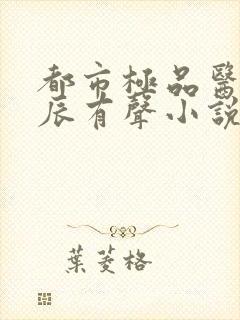 都市極品醫
辰有聲小說
葉菱格